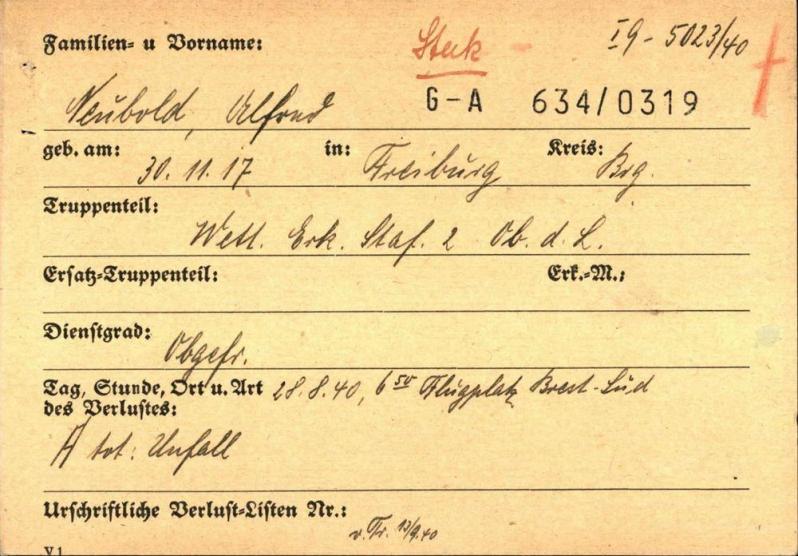 Familien- u Vorname:
Steck
I 9 - 5023/40
Neubold, Alfred
G-A 634/0319
geb. am: 30.11.17 in: Freiburg Kreis: Brg.
Truppenteil:
Wett. Erk. Staf. 2 Ob. d. L.
Ersatz-Truppenteil: Erk.-M.:
Dienstgrad:
Obgefr.
Tag, Stunde, Ort u. Art 28.8.40, 6 50 Flugplatz Brest-Süd
des Verlustes:
tot: Unfall
Urschriftliche Verlust-Listen Nr.:
13/9.40
V 1